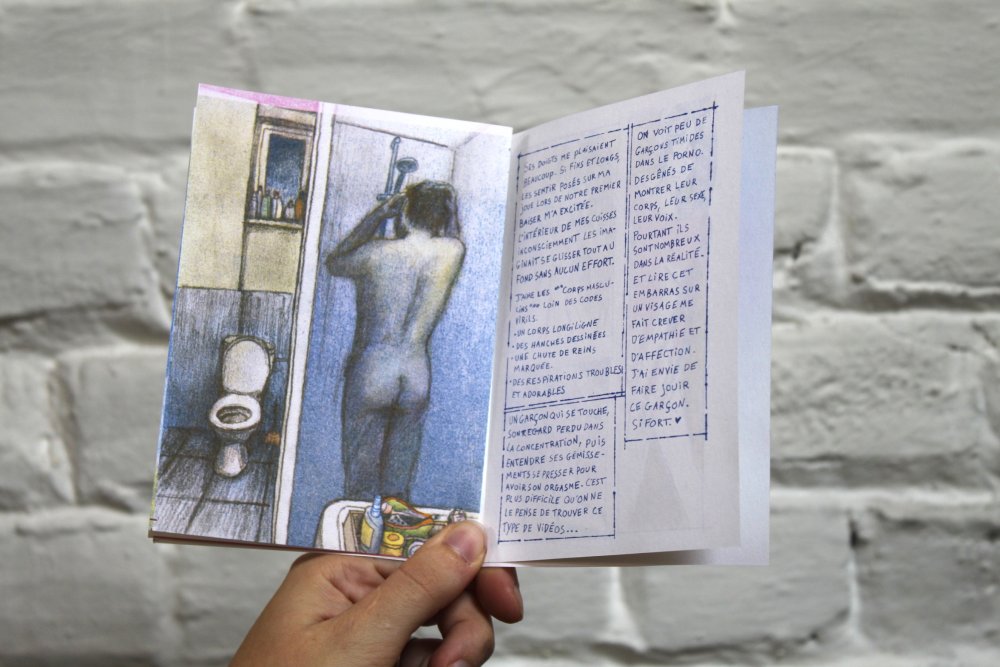 SES DOIGTS ME PLAISAIENT
BEAUCOUP. SI FINS ET LONGS,
LES SENTIR POSÉS SUR MA
JOUE LORS DE NOTRE PREMIER
BAISER M'A EXCITÉE.
L'INTÉRIEUR DE MES CUISSES
INCONSCIEMMENT LES IMA-
GINAIT SE GLISSER TOUT AU
FOND SANS AUCUN EFFORT.
J'AIME LES "CORPS MASCU-
LINS" LOIN DES CODES
VIRILS.
•UN CORPS LONGILIGNE
•DES HANCHES DESSINÉES
•UNE CHUTE DE REINS
MARQUÉE.
•DES RESPIRATIONS TROUBLES
ET ADORABLES
UN GARÇON QUI SE TOUCHE,
SON REGARD PERDU DANS
LA CONCENTRATION, PUIS
ENTENDRE SES GÉMISSE-
MENTS SE PRESSER POUR
AVOIR SON ORGASME. C'EST
PLUS DIFFICILE QU'ON NE
LE PENSE DE TROUVER CE
TYPE DE VIDÉOS...
ON VOIT PEU DE
GARÇONS TIMIDES
DANS LE PORNO.
DES GÊNÉS DE
MONTRER LEUR
CORPS, LEUR SEXE,
LEUR VOIX.
POURTANT ILS
SONT NOMBREUX
DANS LA RÉALITÉ.
ET LIRE CET
EMBARRAS SUR
UN VISAGE ME
FAIT CREVER
D'EMPATHIE ET
D'AFFECTION.
J'AI ENVIE DE
FAIRE JOUIR
CE GARÇON.
SI FORT. ♥